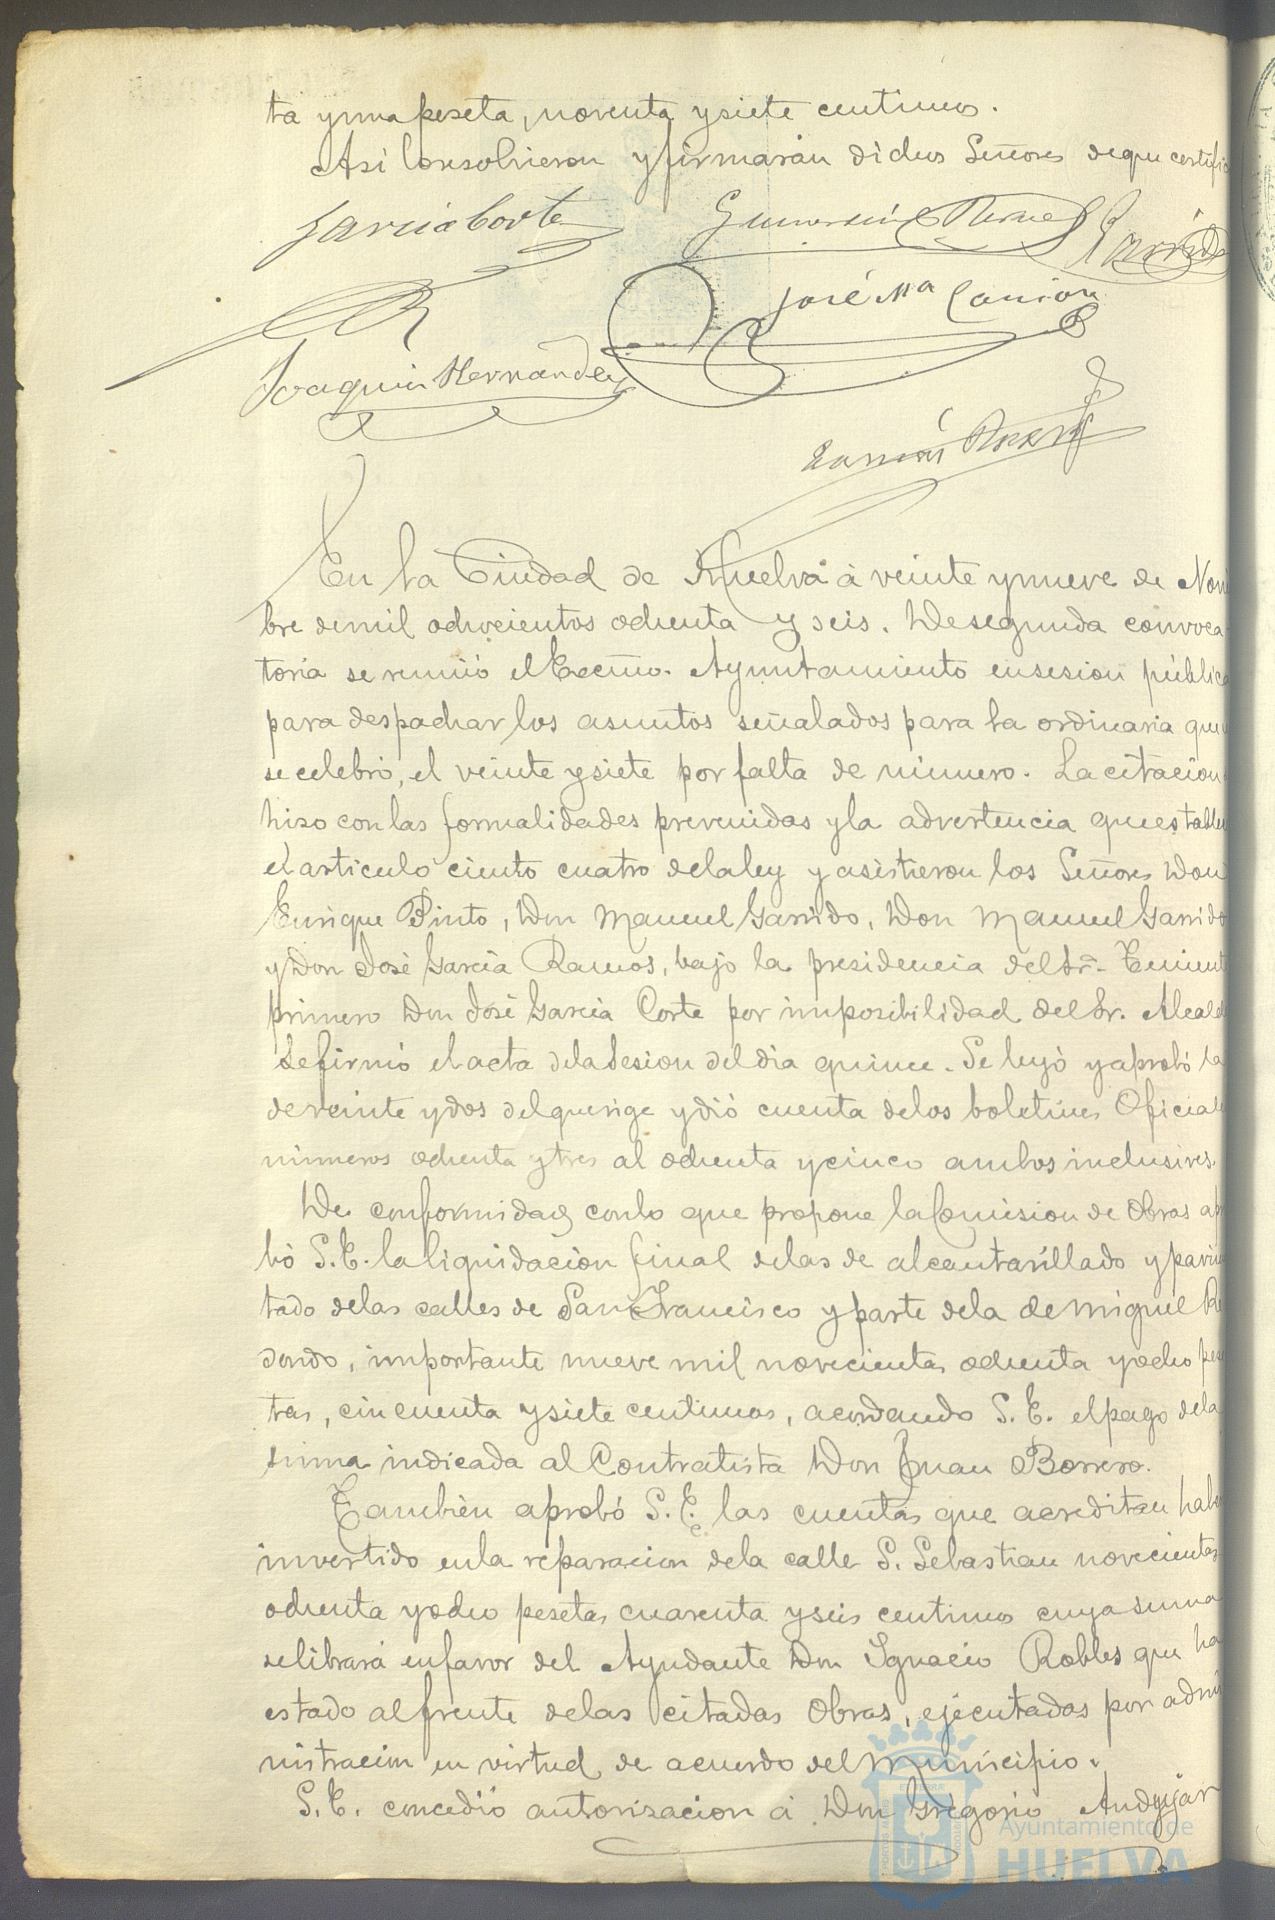 ta y una peseta, noventa y siete centimos.
Asi lo resolvieron y firmarán dichos Señores de que certific
García Corte
Gumersindo Garrido
José Mª Carrion
Joaquin Hernandez
Ramón
En la Ciudad de Huelva à veinte y nueve de Novi
bre de mil ochocientos ochenta y seis. De segunda convoca
toria se reunió el Excmo. Ayuntamiento en sesion pública
para despachar los asuntos señalados para la ordinaria que
se celebró, el veinte y siete por falta de número. La citacion
hizo con las formalidades prevenidas y la advertencia que estable
el articulo ciento cuatro de la ley y asistieron los Señores Don
Enrique Pinto, Don Manuel Garrido, Don Manuel Garrido
y Don José García Ramos, bajo la presidencia del Sr. Tenient
primero Don José García Corte por imposibilidad del Sr. Alcald
Se firmó el acta de la Sesion del dia quince. Se leyó y aprobó la
de veinte y dos del que rige y dió cuenta de los boletines Oficial
números ochenta y tres al ochenta y cinco ambos inclusives.
De conformidad con lo que propone la Comision de Obras ap
bó S. E. la liquidación final de las de alcantarillado y pavi
tado de las calles de San Francisco y parte de la de Miguel Re
dondo, importante nueve mil novecientas ochenta y ocho pese
tas, cincuenta y siete centimos, acordando S. E. el pago de la
suma indicada al Contratista Don Juan Borrero.
Tambièn aprobó S. E. las cuentas que acreditan habe
invertido en la reparacion de la calle S. Sebastian novecientas
ochenta y ocho pesetas cuarenta y seis centimos cuya suma
se librará en favor del Ayudante Don Ignacio Robles que ha
estado al frente de las citadas Obras, ejecutadas por admi
nistracion en virtud de acuerdo del Municipio.
S. E. concedió autorizacion á Don Gregorio Andujar
Ayuntamiento de
HUELVA